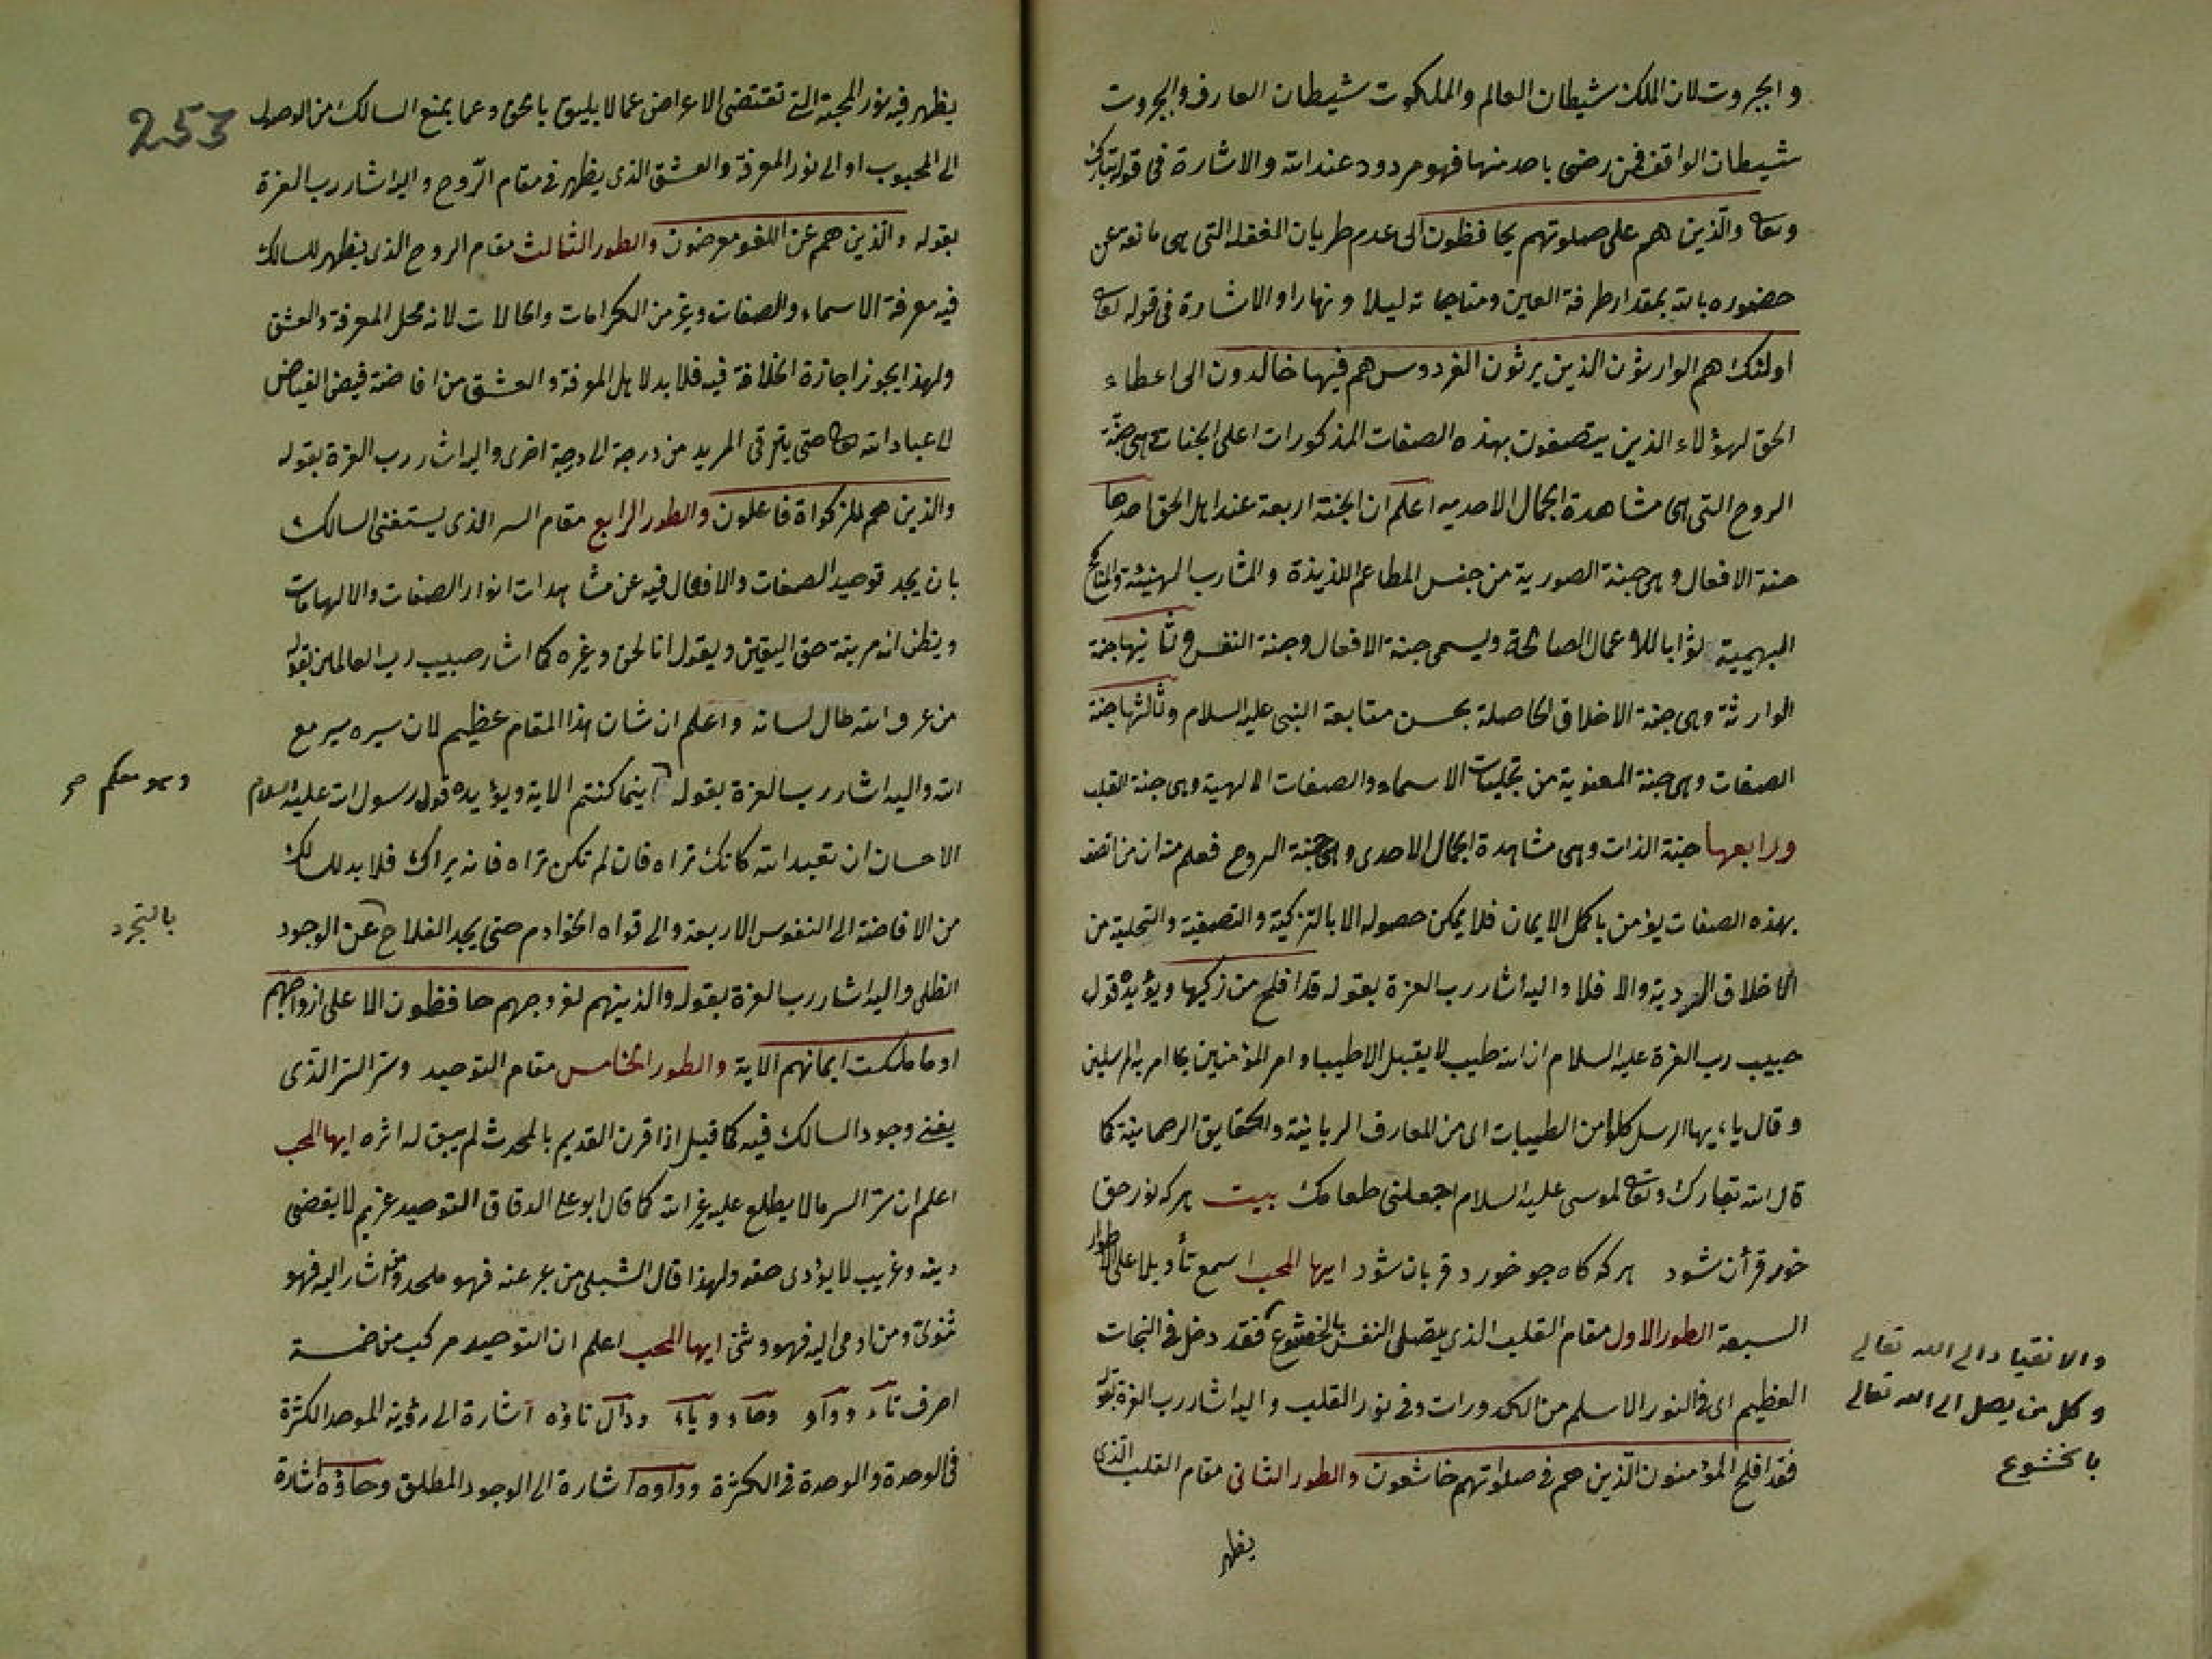 والجبروت لان الملك شيطان العالم والملكوت شيطان العارف والجبروت
شيطان الواقف فمن رضى باحد منها فهو مردود عند الله والاشارة فى قوله تبارك
وتعا والذين هم على صلوتهم يحافظون الى عدم طريان الغفلة التى هى مانعة عن
حضوره بالله بمقدار طرفة العين ومناجاته ليلا ونهارا والاشارة فى قوله تعا
اولئك هم الوارثون الذين يرثون الفردوس هم فيها خالدون الى اعطاء
الحق لهؤلاء الذين يتصفون بهذه الصفات المذكورات اعلى الجنات هى جنة
الروح التى هى مشاهدة الجمال الاحديه اعلم ان الجنة اربعة عند اهل الحق احدها
جنة الافعال وهى جنة الصورية من جنس المطاعم اللذيذة والمشارب الهنيئة والمناكح
البهيمية ثوابا للاعمال الصالحة ويسمى جنة الافعال وجنة النفس وثانيها جنة
الوارثة وهى جنة الاخلاق الحاصلة بحسن متابعة النبى عليه السلام وثالثها جنة
الصفات وهى جنة المعنوية من تجليات الاسماء والصفات الالهية وهى جنة القلب
ورابعها جنة الذات وهى مشاهدة الجمال الاحدى وهى جنة الروح فعلم منه ان من اتصف
بهذه الصفات يؤمن باكمل الايمان فلا يمكن حصوله الا بالتزكية والتصفية والتحلية من
الاخلاق الردية والا فلا واليه اشار رب العزة بقوله قد افلح من زكيها ويؤيده قول
حبيب رب العزة عليه السلام ان الله طيب لا يقبل الا طيبا وامر المؤمنين بما امر به المرسلين
وقال يا ايها الرسل كلوا من الطيبات اى من المعارف الربانية والحقايق الرحمانية كما
قال الله تبارك وتعا لموسى عليه السلام اجعلنى طعامك بيت هركه نور حق
خورد قرأن شود هركه كاه جو خورد قربان شود ايها المحب اسمع تأويلا على الاطوار
السبعة الطور الاول مقام القلب الذى يتصلى النفس بالخشوع فقد دخل فى النجات
والانقياد الى الله تعالى
وكل من يصل الى الله تعالى
بالخشوع
العظيم اى فى النور الاسلم من الكدورات وفى نور القلب واليه اشار رب العزة بقوله
فقد افلح المؤمنون الذين هم فى صلواتهم خاشعون والطور الثانى مقام القلب الذى
يظهر
253
يظهر فيه نور المحبة التى تقتضى الاعراض عما لا يليق بالحق وعما يمنع السالك من الوصول
الى المحبوب او الى نور المعرفة والعشق الذى يظهر فى مقام الروح واليه اشار رب العزة
بقوله والذين هم عن اللغو معرضون والطور الثالث مقام الروح الذى يظهر للسالك
فيه معرفة الاسماء والصفات وغير من الكرامات والحالات لانه محل المعرفة والعشق
ولهذا يجوز اجازة الخلافة فيه فلا بد لاهل المعرفة والعشق من افاضة فيض الفياض
لاعباد الله تعا حتى يترقى المريد من درجة الى درجة اخرى واليه اشار رب العزة بقوله
والذين هم للزكواة فاعلون والطور الرابع مقام السر الذى يستغنى السالك
بان يجد توحيد الصفات والافعال فيه عن مشاهدات انوار الصفات والالهامات
ويظن انه مرتبة حق اليقين ويقول انا الحق وغيره كما اشار حبيب رب العالمين بقوله
من عرف الله طال لسانه واعلم ان شان هذا المقام عظيم لان سيره سير مع
الله واليه اشار رب العزة بقوله اينما كنتم الاية ويؤيده قول رسول الله عليه السلام
وهو معكم صح
الاحسان ان تعبد الله كانك تراه فان لم تكن تراه فانه يراك فلا بد للسالك
من الافاضة الى النفوس الاربعة والى قواه الخوادم حتى يجد الفلاح عن الوجود
بالتجرد
الظلى واليه اشار رب العزة بقوله والذينهم لفروجهم حافظون الا على ازواجهم
او ما ملكت ايمانهم الاية والطور الخامس مقام التوحيد وسر السر الذى
يفنى وجود السالك فيه كما قيل اذا قرن القديم بالمحدث لم يبق له اثره ايها المحب
اعلم ان سر السر ما لا يطلع عليه غير الله كما قال ابو على الدقاق التوحيد غريم لا يقضى
دينه وغريب لا يؤدى حقه ولهذا قال الشبلى من عبر عنه فهو ملحد ومن اشار اليه فهو
ثنوى ومن اومى اليه فهو وثنى ايها المحب اعلم ان التوحيد مركب من خمسة
احرف تاء وواو وحاء وياء ودال تاؤه اشارة الى رؤية الموحد الكثرة
فى الوحدة والوحدة فى الكثرة وواوه اشارة الى الوجود المطلق وحاؤه اشارة